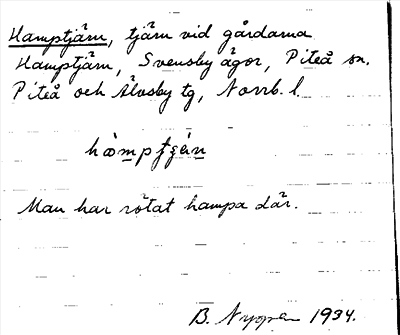 Hamptjärn, tjärn vid gårdarna
Hamptjärn, Svensby ägor, Piteå sn.
Piteå och Älvsby tg, Norrb. l.
Man har rötat hampa där.
B. 1934.